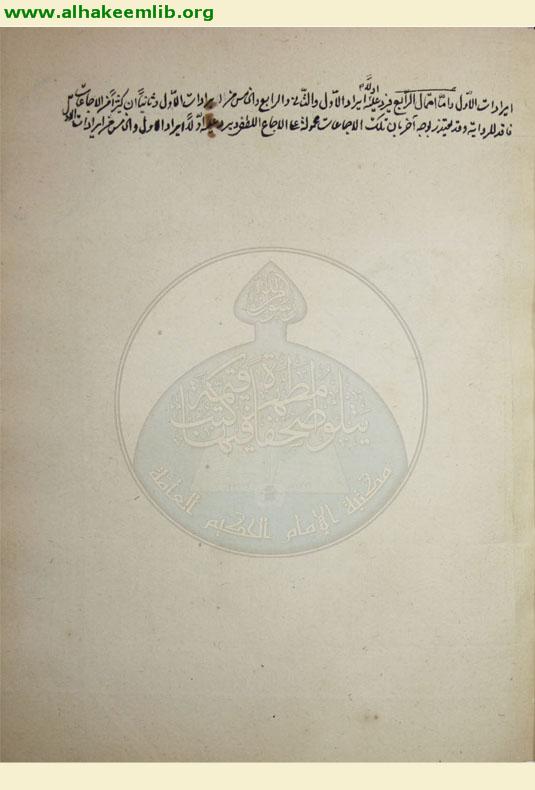 www.alhakeemlib.org
اولاً
ايرادات الاول واما احتمال الرابع فيرد عليه ايراد الاول والثانى والرابع والخامس من ايرادات الاول وثانياً ان كثيراً من الاجماعات
فاقد للرواية وقد يعتذر بوجه آخر بان تلك الاجماعات محمولة على الاجماع اللطفى ويرد عليه اولاً ايراد الاول والخامس من ايرادات
رسول الله
يتلو صحفا مطهرة فيها كتب قيمة
مكتبة الإمام الحكيم العامة